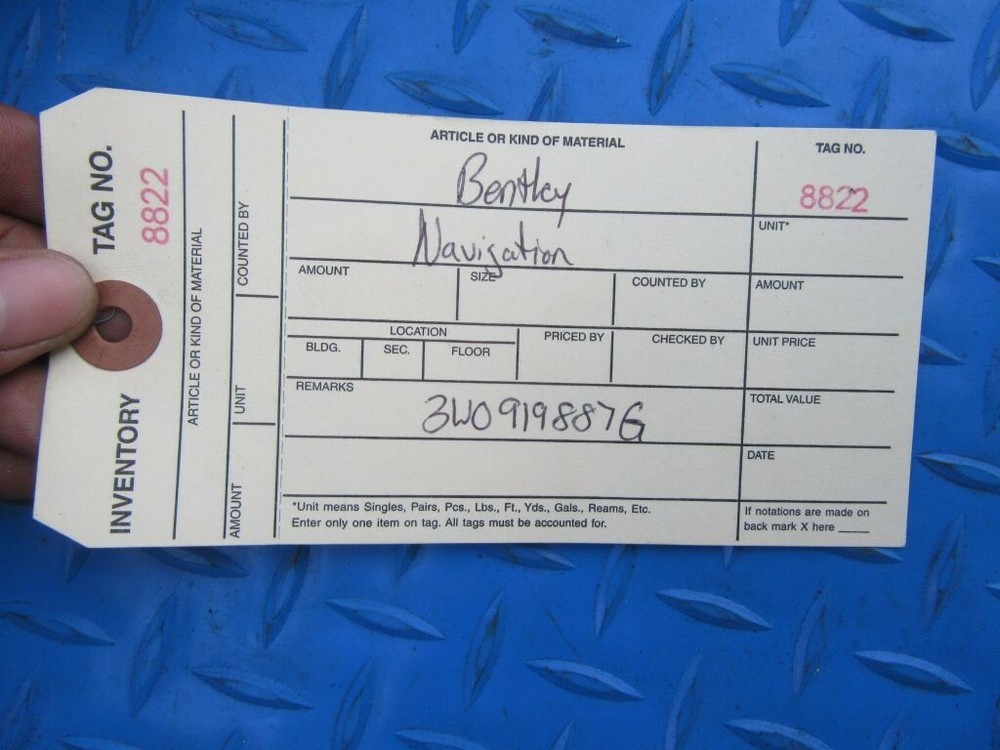 TAG NO.
8822
INVENTORY
ARTICLE OR KIND OF MATERIAL
COUNTED BY
UNIT
AMOUNT
ARTICLE OR KIND OF MATERIAL
Bentley
Navigation
TAG NO.
8822
UNIT*
AMOUNT
SIZE
COUNTED BY
AMOUNT
LOCATION
BLDG.
SEC.
FLOOR
PRICED BY
CHECKED BY
UNIT PRICE
REMARKS
3W0919887G
TOTAL VALUE
DATE
*Unit means Singles, Pairs, Pcs., Lbs., Ft., Yds., Gals., Reams, Etc.
Enter only one item on tag. All tags must be accounted for.
If notations are made on
back mark X here ____